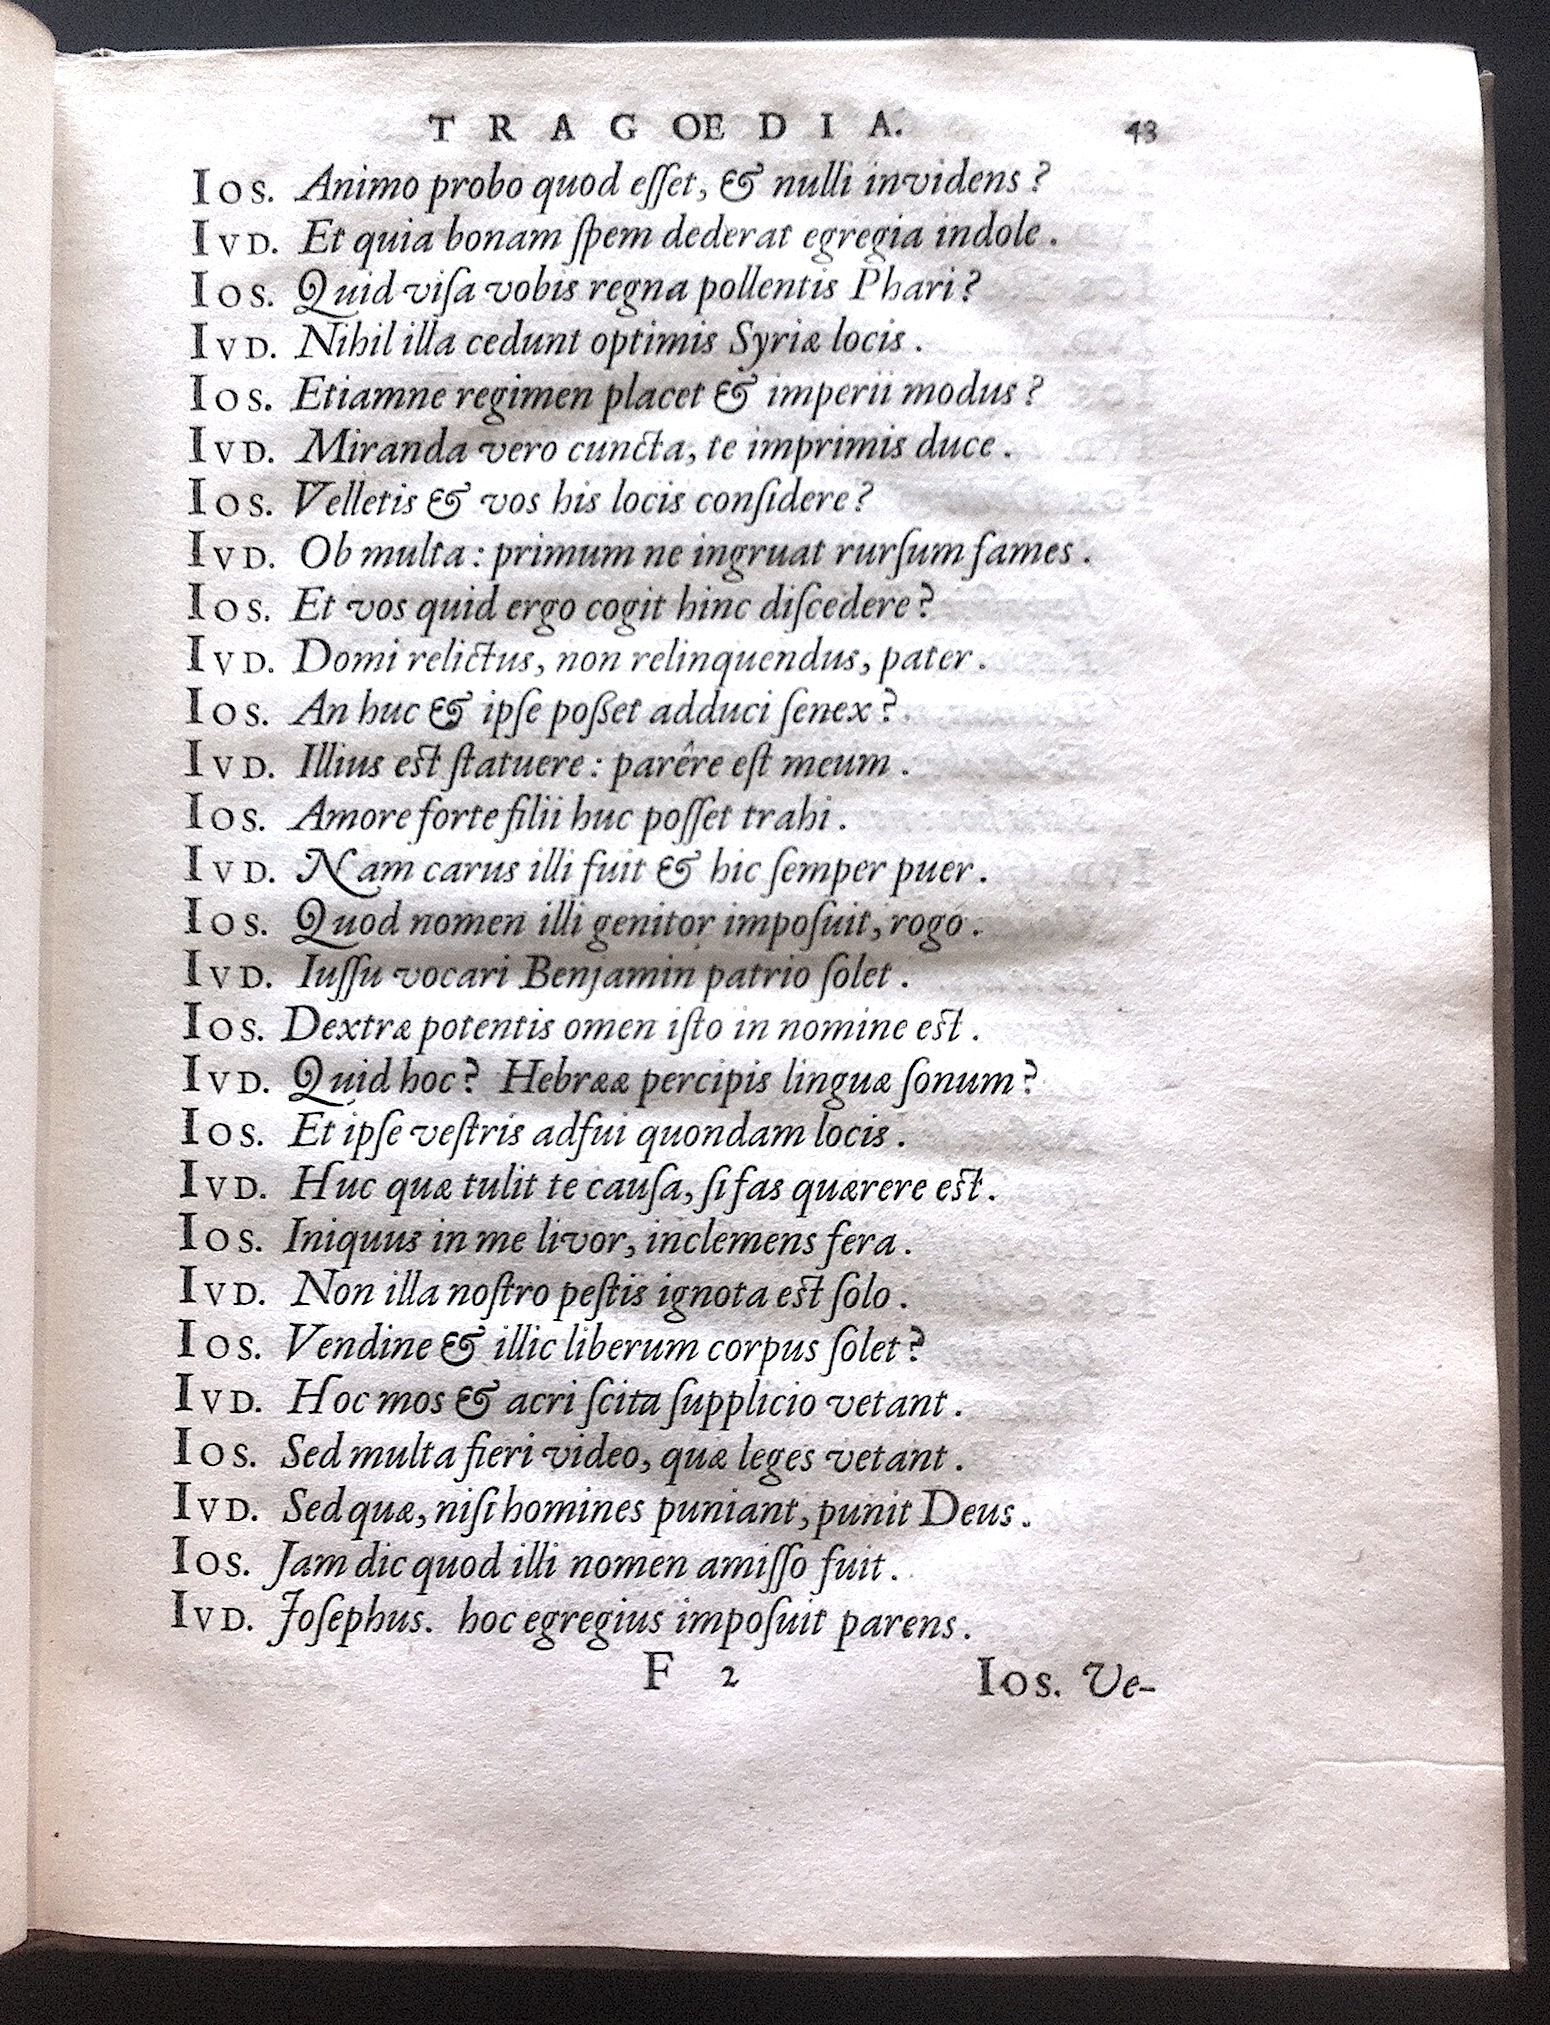 TRAGOEDIA. 43
Ios. Animo probo quod eſſet, & nulli invidens?
Ivd. Et quia bonam ſpem dederat egregia indole.
Ios. Quid viſa vobis regna pollentis Phari?
Ivd. Nihil illa cedunt optimis Syriæ locis.
Ios. Etiamne regimen placet & imperii modus?
Ivd. Miranda vero cuncta, te imprimis duce.
Ios. Velletis & vos his locis conſidere?
Ivd. Ob multa: primum ne ingruat rurſum fames.
Ios. Et vos quid ergo cogit hinc diſcedere?
Ivd. Domi relictus, non relinquendus, pater.
Ios. An huc & ipſe poßet adduci ſenex?
Ivd. Illius est ſtatuere: parêre eſt meum.
Ios. Amore forte filii huc poſſet trahi.
Ivd. Nam carus illi fuit & hic ſemper puer.
Ios. Quod nomen illi genitor impoſuit, rogo.
Ivd. Iuſſu vocari Benjamin patrio ſolet.
Ios. Dextræ potentis omen iſto in nomine est.
Ivd. Quid hoc? Hebrææ percipis linguæ ſonum?
Ios. Et ipſe veſtris adfui quondam locis.
Ivd. Huc quæ tulit te cauſa, ſi fas quærere est.
Ios. Iniquus in me livor, inclemens fera.
Ivd. Non illa noſtro peſtis ignota est ſolo.
Ios. Vendine & illic liberum corpus ſolet?
Ivd. Hoc mos & acri ſcita ſupplicio vetant.
Ios. Sed multa fieri video, quæ leges vetant.
Ivd. Sed quæ, niſi homines puniant, punit Deus.
Ios. Jam dic quod illi nomen amiſſo fuit.
Ivd. Joſephus. hoc egregius impoſuit parens.
F 2 Ios. Ve-